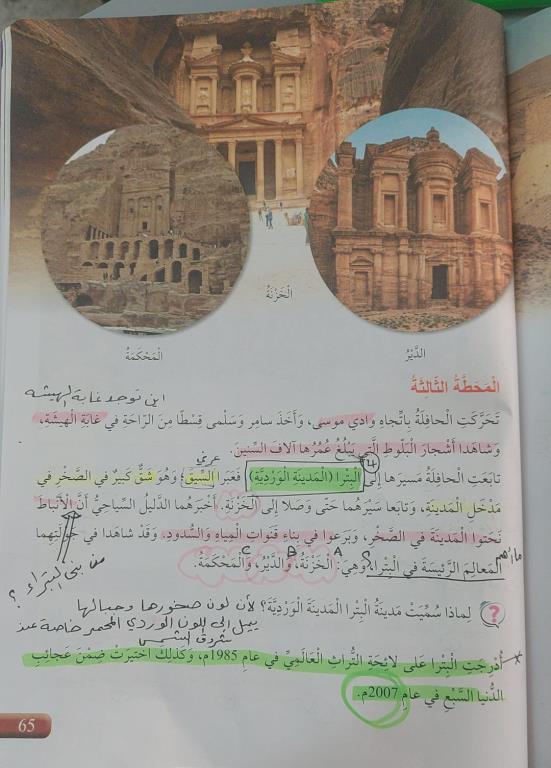 الْخَزْنَةُ
الدَّيْرُ
الْمَحْكَمَةُ
الْمَحَطَّةُ الثَّالِثَةُ
اين توجد غابة الهيشه
تَحَرَّكَتِ الْحافِلَةُ بِاتِّجاهِ وادي موسى، وَأَخَذَ سامِر وَسَلْمى قِسْطًا مِنَ الرّاحَةِ في غابَةِ الْهيشَةِ،
وَشاهَدا أَشْجارَ الْبَلّوطِ الَّتي يَبْلُغُ عُمُرُها آلافَ السِّنينَ.
تابَعَتِ الْحافِلَةُ مَسيرَها إِلى الْبِتْرا (الْمَدينَةِ الْوَرْدِيَّةِ) فَعَبَرا السّيقَ؛ وَهُوَ شَقٌّ كَبيرٌ في الصَّخْرِ في
مَدْخَلِ الْمَدينَةِ، وَتابَعا سَيْرَهُما حَتّى وَصَلا إِلى الْخَزْنَةِ. أَخْبَرَهُما الدَّليلُ السِّياحِيُّ أَنَّ الْأَنْباطَ
نَحَتوا الْمَدينَةَ في الصَّخْرِ، وَبَرَعوا في بِناءِ قَنَواتِ الْمِياهِ وَالسُّدودِ. وَقَدْ شاهَدا في جَوْلَتِهِما
ما اهم
A B C
الْمَعالِمَ الرَّئيسَةَ في الْبِتْراءِ، وَهِيَ: الْخَزْنَةُ، وَالدَّيْرُ، وَالْمَحْكَمَةُ.
من بنى البتراء ؟
لِماذا سُمِّيَتْ مَدينَةُ الْبِتْرا الْمَدينَةَ الْوَرْدِيَّةَ؟ لأن لون صخورها وجبالها
يميل الى اللون الوردي المحمر خاصة عند
شروق الشمس
أُدْرِجَتِ الْبِتْرا عَلى لائِحَةِ التُّراثِ الْعالَمِيِّ في عامِ 1985م، وَكَذلِكَ اخْتيرَتْ ضِمْنَ عَجائِبِ
الدُّنْيا السَّبْعِ في عامِ 2007م.
65